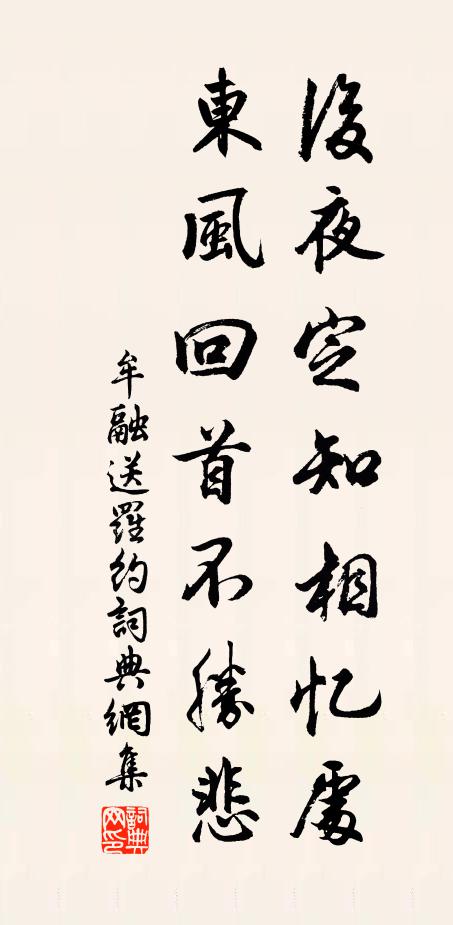 後夜定知相忆處
東風回首不勝悲
牟融送羅約詞典網集
詞典
网印